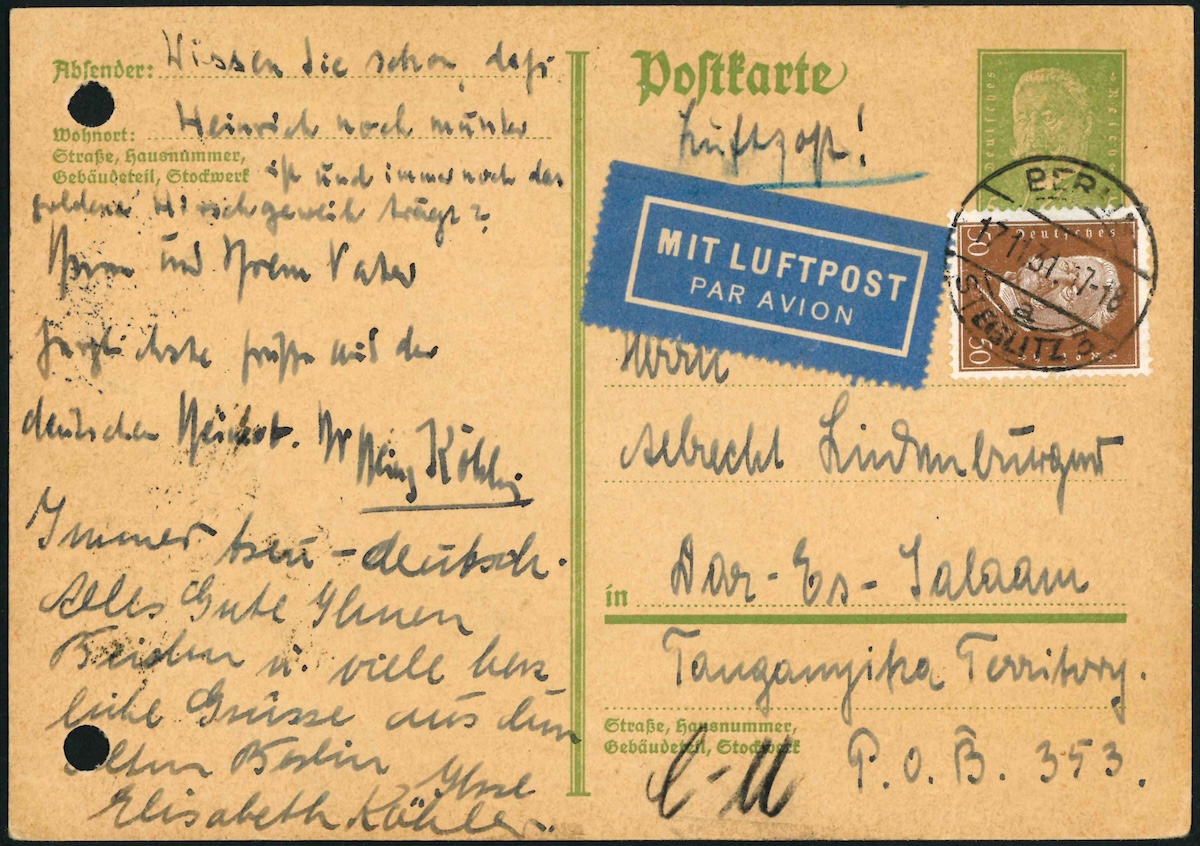 Absender: Wissen Sie schon, daß
Wohnort: Heinrich noch munter
Straße, Hausnummer,
Gebäudeteil, Stockwerk ist und immer noch das
goldene Hirschgeweih trägt?
Ihnen und Ihrem Vater
herzlichste Grüße aus der
deutschen Dr Heinz Köhler
Immer treu-deutsch.
Alles Gute Ihnen
Beiden u. viele herz
liche Grüsse aus dem
alten Berlin Ihre
Elisabeth Köhler.
Postkarte
Luftpost!
Deutsches Reich
MIT LUFTPOST
PAR AVION
50 Deutsches
50
BERLIN
17.11.31.17-18
a
STEGLITZ 2
Herrn
Albrecht Lindenburger
in Dar-Es-Salaam
Tanganyika Territory.
Straße, Hausnummer,
Gebäudeteil, Stockwerk
P.O.B. 353.